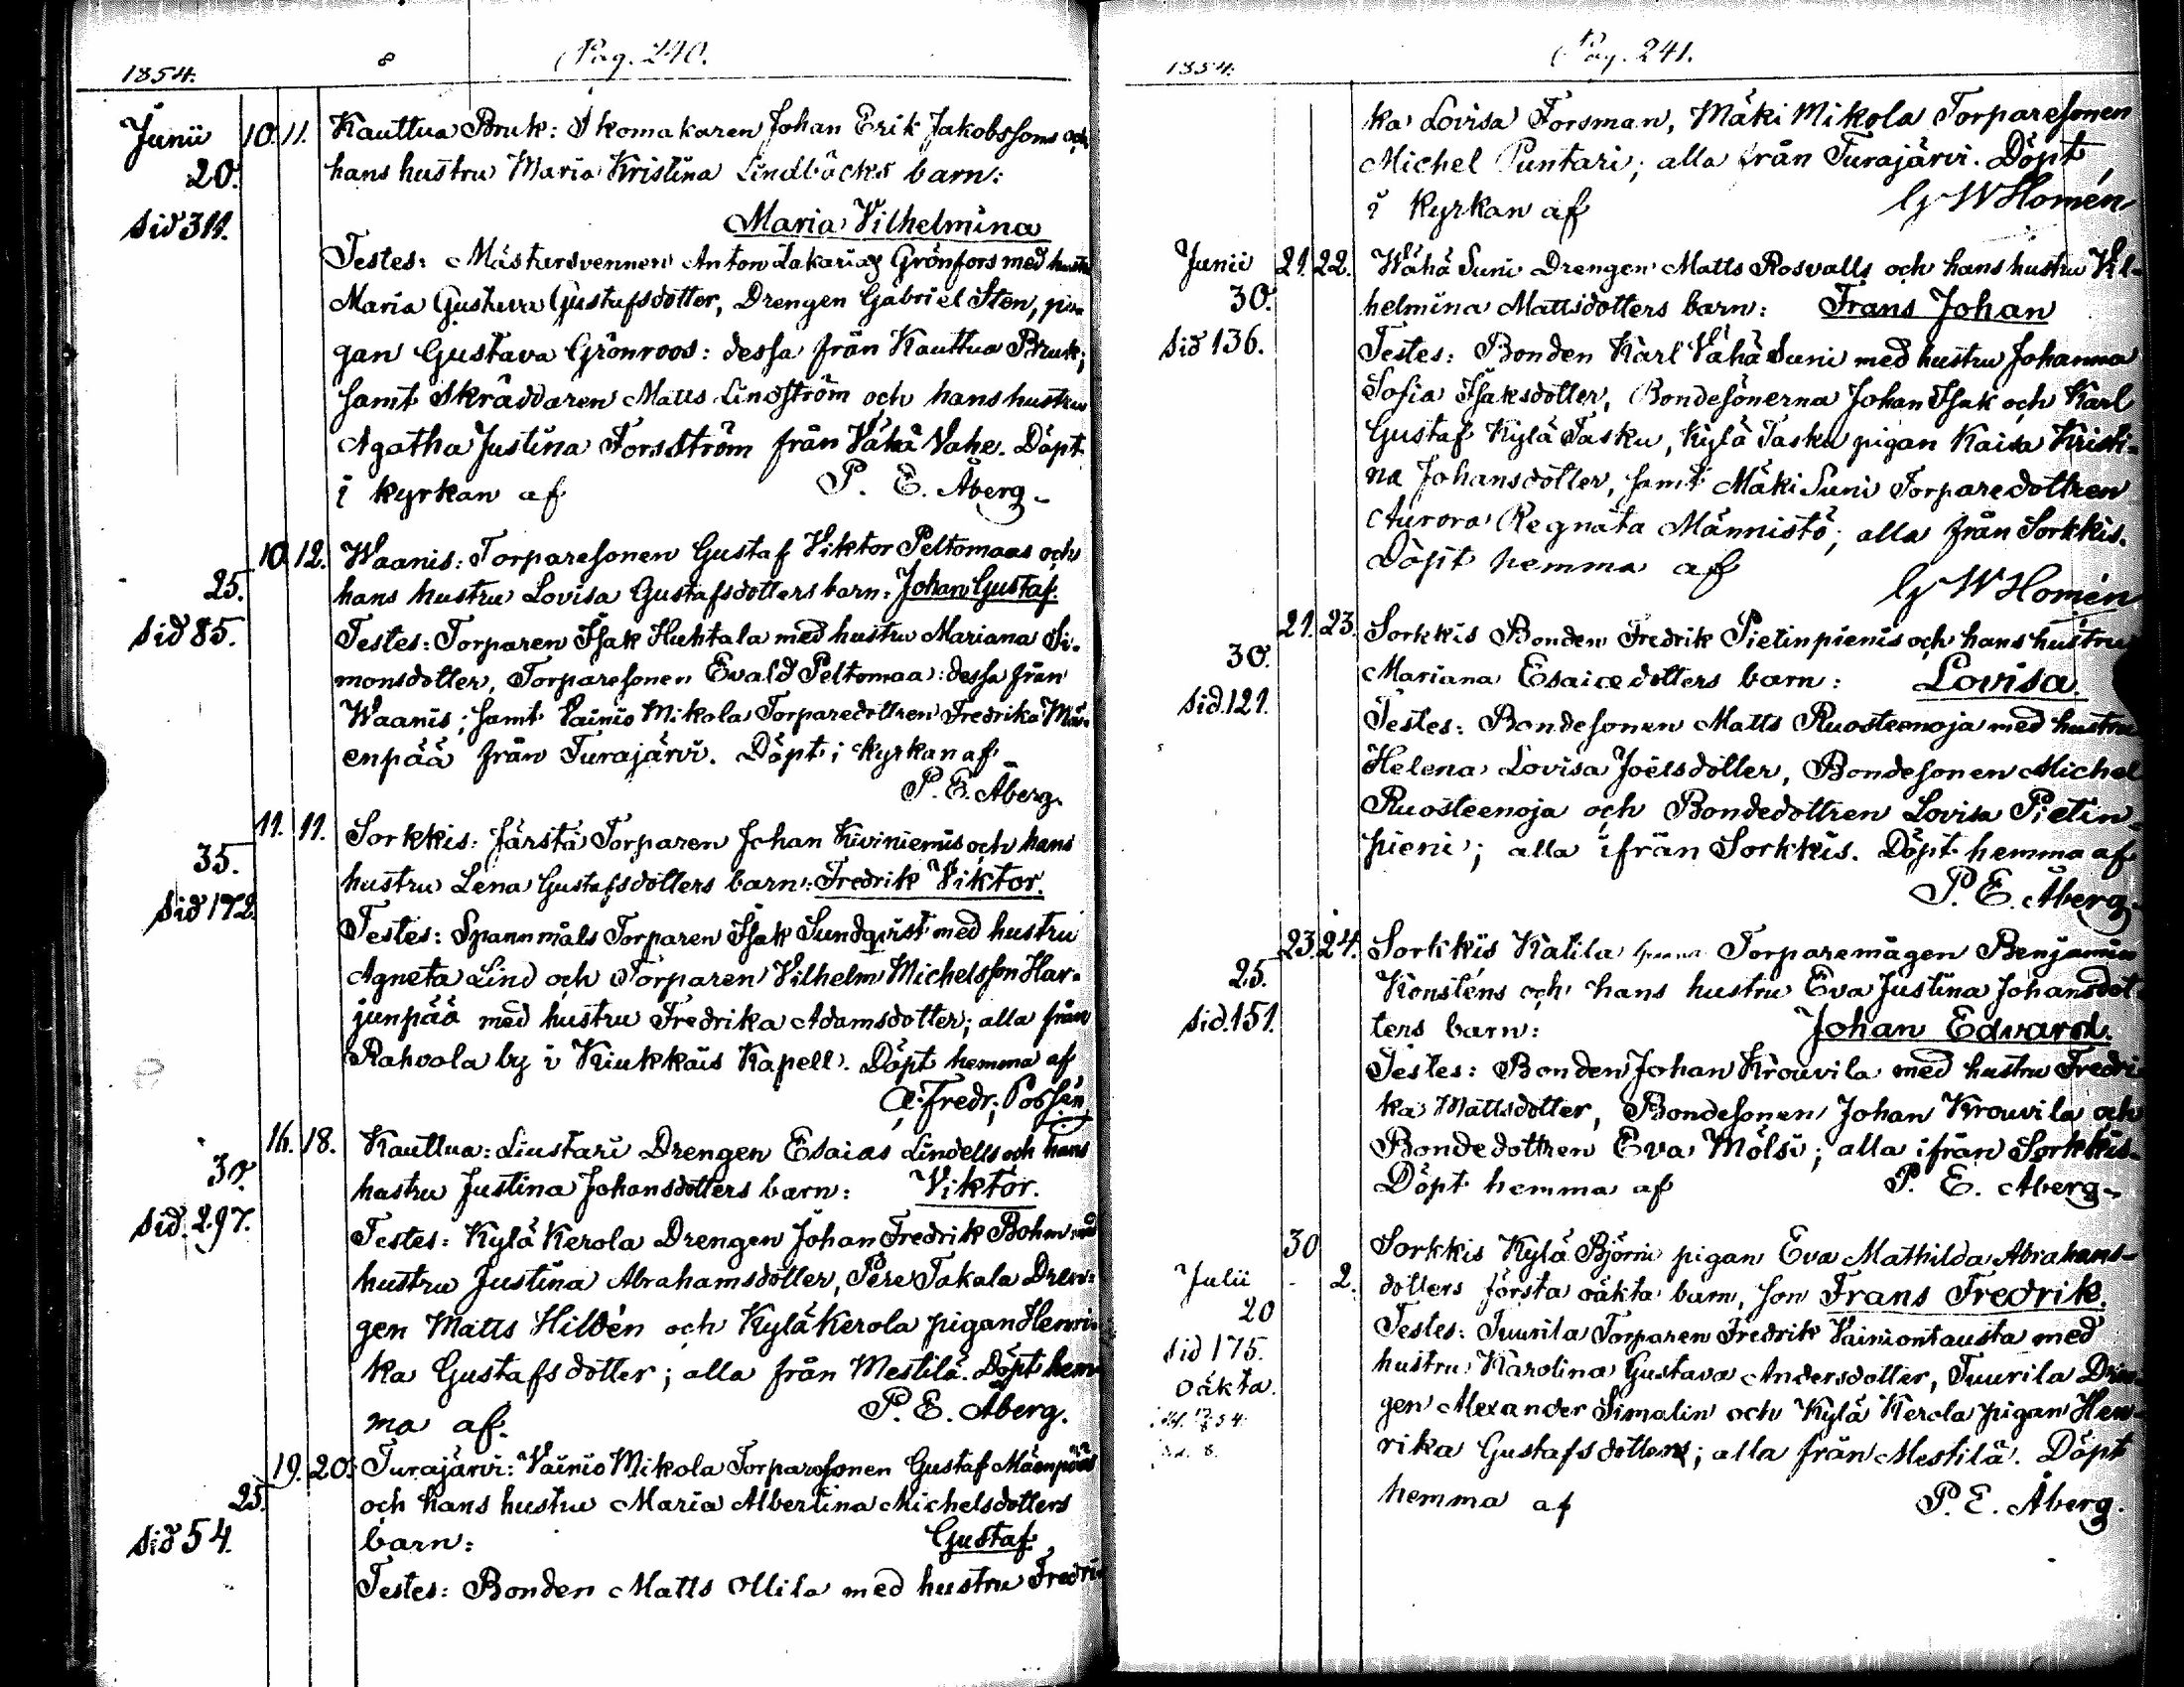 1854. 8 Pag. 240.
Junii 10. 11. Kauttua Bruk: Skomakaren Johan Erik Jakobssons och
20. hans hustru Maria Kristina Lindbäcks barn:
Sid 311. Maria Vilhelmina
Testes: Mästersvennen Anton Zakarias Grönfors med hustru
Maria Gustava Gustafsdotter, Drengen Gabriel Sten, pi-
gan Gustava Grönroos: dessa från Kauttua Bruk;
samt Skräddaren Matts Lindström och hans hustru
Agatha Justina Forsström från Vähä Vahe. Döpt
i kyrkan af P. E. Åberg
10. 12. Waanis: Torparesonen Gustaf Viktor Peltomaas och
25. hans hustru Lovisa Gustafsdotters barn: Johan Gustaf.
Sid 85. Testes: Torparen Isak Huhtala med hustru Mariana Si-
monsdotter, Torparesonen Evald Peltomaa: dessa från
Waanis; samt Vainio Mikola Torparedottren Fredrika Mä-
enpää från Turajärvi. Döpt i kyrkan af
P. E. Åberg.
11. 11. Sorkkis: Järstä Torparen Johan Kiviniemis och hans
35. hustru Lena Gustafsdotters barn: Fredrik Viktor.
Sid 172.
Testes: Spannmåls Torparen Isak Sundqvist med hustru
Agneta Lind och Torparen Vilhelm Michelsson Har-
junpää med hustru Fredrika Adamsdotter; alla från
Rahvola by i Kiukkais Kapell. Döpt hemma af
Fredr: Possén
16. 18. Kauttua: Liustari Drengen Esaias Lindells och hans
30. hustru Justina Johansdotters barn: Viktor.
Sid. 297.
Testes: Kylä Kerola Drengen Johan Fredrik Bohm med
hustru Justina Abrahamsdotter, Pere Takala Dren-
gen Matts Hildén och Kylä Kerola pigan Henri-
ka Gustafsdotter; alla från Mestilä. Döpt hem-
ma af. P. E. Åberg.
19. 20. Turajärvi: Vainio Mikola Torparesonen Gustaf Mäenpääs
25. och hans hustru Maria Albertina Michelsdotters
Sid 54. barn: Gustaf
Testes: Bonden Matts Ollila med hustru Fredri-
1854. Pag. 241.
ka Lovisa Forsman, Mäki Mikola Torparesonen
Michel Puntari; alla från Turajärvi. Döpt
i kyrkan af G W Homén
Junii 21. 22. Wähä Suni Drengen Matts Rosvalls och hans hustru Vil-
30. helmina Mattsdotters barn: Frans Johan
Sid 136. Testes: Bonden Karl Vähä Suni med hustru Johanna
Sofia Isaksdotter, Bondesönerna Johan Isak och Karl
Gustaf Kylä Tasku, Kylä Tasku pigan Kaisa Kristi-
na Johansdotter, samt Mäki Suni Torparedottren
Aurora Regnata Männistö; alla från Sorkkis.
Döpt hemma af
G W Homén
21. 23. Sorkkis Bonden Fredrik Pietinpienis och hans hustru
30. Mariana Esaiædotters barn: Lovisa.
Sid. 121.
Testes: Bondesonen Matts Ruosteenoja med hustru
Helena Lovisa Joëlsdotter, Bondesonen Michel
Ruosteenoja och Bondedottren Lovisa Pietin-
pieni; alla ifrån Sorkkis. Döpt hemma af
P. E. Åberg.
23. 24. Sorkkis Katila Torparemågen Benjamin
25. Konsténs och hans hustru Eva Justina Johansdot-
Sid. 151. ters barn: Johan Edvard.
Testes: Bonden Johan Krouvila med hustru Fredri-
ka Mattsdotter, Bondesonen Johan Krouvila och
Bondedottren Eva Mölsi; alla ifrån Sorkkis.
Döpt hemma af P. E. Åberg
30 Sorkkis Kylä Björni pigan Eva Mathilda Abrahams-
Julii - 2. dotters första oäkta barn, son Frans Fredrik.
20
Testes: Tuurila Torparen Fredrik Vainiontausta med
Sid 175. hustru Karolina Gustava Andersdotter, Tuurila Dren-
oäkta. gen Alexander Simalin och Kylä Kerola pigan Hen-
rika Gustafsdotter; alla från Mestilä. Döpt
hemma af P. E. Åberg.